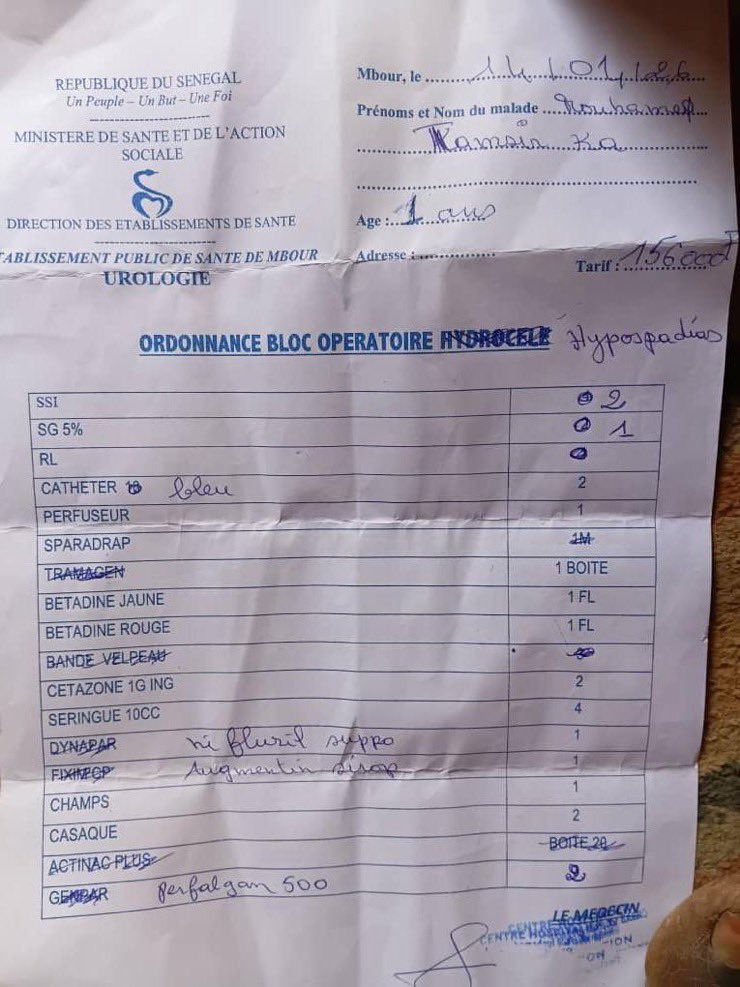 REPUBLIQUE DU SENEGAL
Un Peuple – Un But – Une Foi
MINISTERE DE SANTE ET DE L'ACTION
SOCIALE
DIRECTION DES ETABLISSEMENTS DE SANTE
TABLISSEMENT PUBLIC DE SANTE DE MBOUR
UROLOGIE
Mbour, le 14/01/26
Prénoms et Nom du malade Mouhamed
Ka
Age : 1 ans
Adresse :
Tarif : 156000F
ORDONNANCE BLOC OPERATOIRE HYDROCELE Hypospadias
SSI 2
SG 5% 1
RL
CATHETER bleu 2
PERFUSEUR 1
SPARADRAP 1M
TRAMAGEN 1 BOITE
BETADINE JAUNE 1 FL
BETADINE ROUGE 1 FL
BANDE VELPEAU
CETAZONE 1G ING 2
SERINGUE 10CC 4
DYNAPAR ni fluril suppo 1
Augmentin sirop 1
CHAMPS 1
CASAQUE 2
ACTINAC PLUS BOITE 20
perfalgan 500 2
LE MEDECIN
CENTRE